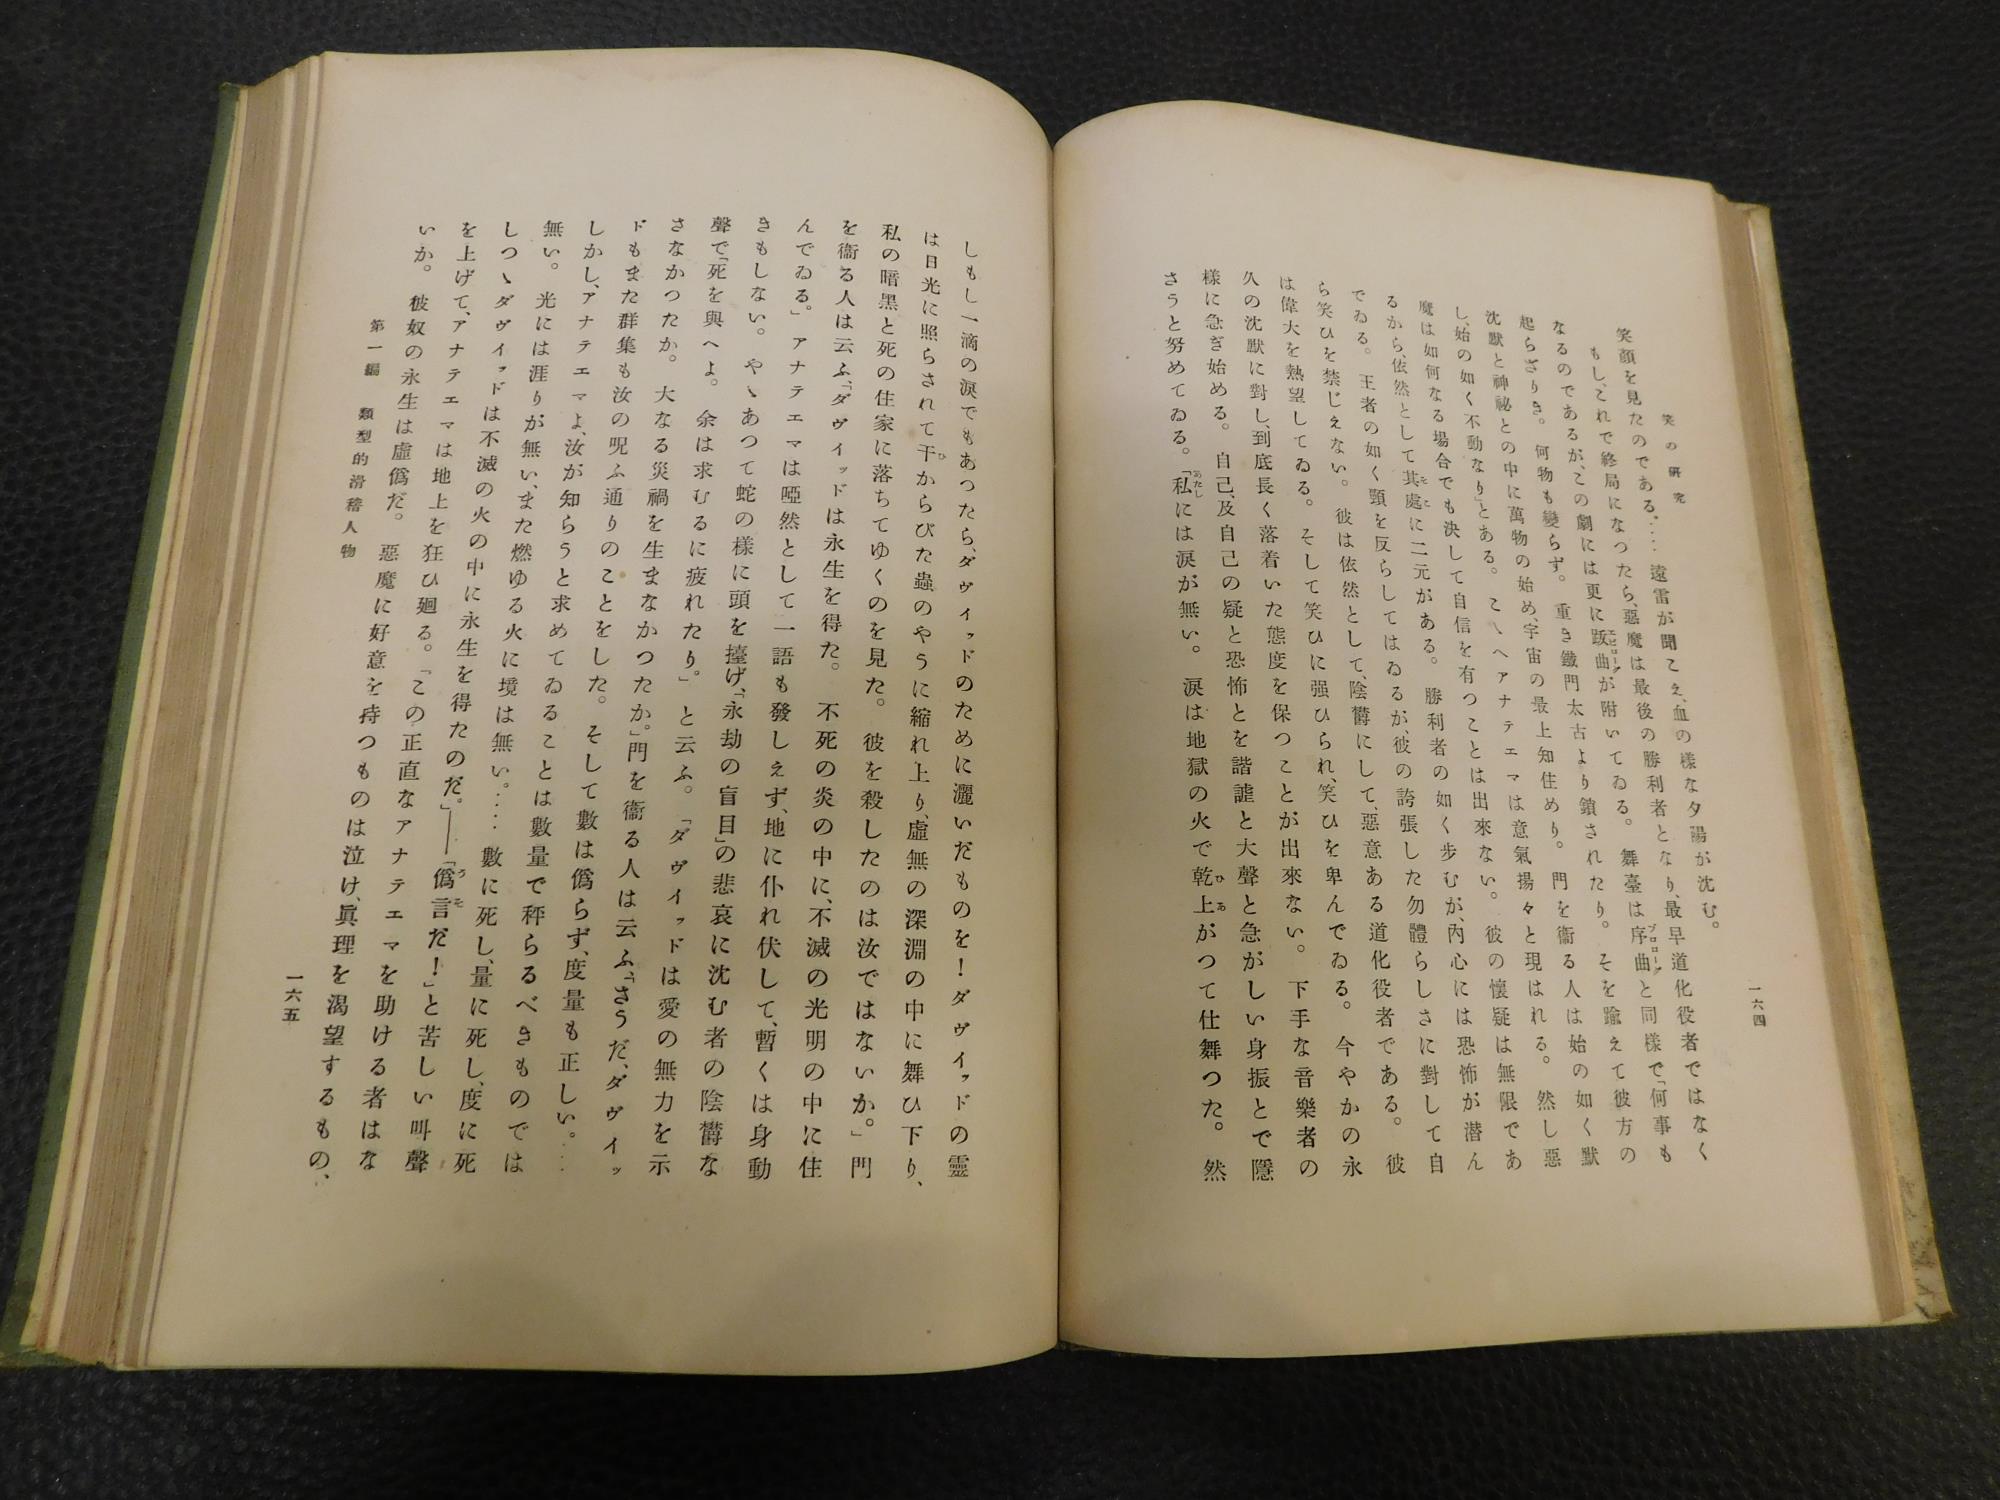 笑の研究
一六四
笑顔を見たのである。‥‥遠雷が聞こえ、血の様な夕陽が沈む。
もし、これで終局になつたら、惡魔は最後の勝利者となり、最早道化役者ではなく
なるのであるが、この劇には更に跋曲が附いてゐる。舞臺は序曲と同様で「何事も
起らざりき。何物も變らず。重き鐵門太古より鎖されたり。そを踰えて彼方の
沈默と神祕との中に萬物の始め、宇宙の最上知住めり。門を衞る人は始の如く默
し、始の如く不動なり」とある。こゝへアナテエマは意氣揚々と現はれる。然し惡
魔は如何なる場合でも決して自信を有つことは出來ない。彼の懷疑は無限であ
るから、依然として其處に二元がある。勝利者の如く步むが、內心には恐怖が潛ん
でゐる。王者の如く頸を反らしてはゐるが、彼の誇張した勿體らしさに對して自
ら笑ひを禁じえない。彼は依然として、陰欝にして、惡意ある道化役者である。彼
は偉大を熱望してゐる。そして笑ひに强ひられ、笑ひを卑んでゐる。今やかの永
久の沈默に對し、到底長く落着いた態度を保つことが出來ない。下手な音樂者の
様に急ぎ始める。自己、及自己の疑と恐怖とを諧謔と大聲と急がしい身振とで隱
さうと努めてゐる。「私には淚が無い。淚は地獄の火で乾上がつて仕舞つた。然
しもし一滴の淚でもあつたら、ダヴィッドのために灑いだものを！ダヴィッドの靈
は日光に照らされて干からびた蟲のやうに縮れ上り、虛無の深淵の中に舞ひ下り、
私の暗黑と死の住家に落ちてゆくのを見た。彼を殺したのは汝ではないか。」門
を衞る人は云ふ、「ダヴィッドは永生を得た。不死の炎の中に、不滅の光明の中に住
んでゐる。」アナテエマは啞然として一語も發しえず、地に仆れ伏して、暫くは身動
きもしない。やゝあつて蛇の様に頭を擡げ、「永劫の盲目」の悲哀に沈む者の陰欝な
聲で「死を與へよ。余は求むるに疲れたり。」と云ふ。「ダヴィッドは愛の無力を示
さなかつたか。大なる災禍を生まなかつたか。」門を衞る人は云ふ、「さうだ、ダヴィッ
ドもまた群集も汝の呪ふ通りのことをした。そして數は僞らず、度量も正しい。‥‥
しかし、アナテエマよ、汝が知らうと求めてゐることは數量で秤らるべきものでは
無い。光には涯りが無い、また燃ゆる火に境は無い。‥‥數に死し、量に死し、度に死
しつゝダヴィッドは不滅の火の中に永生を得たのだ。」――「僞言だ！」と苦しい叫聲
を上げて、アナテエマは地上を狂ひ廻る。「この正直なアナテエマを助ける者はな
いか。彼奴の永生は虛僞だ。惡魔に好意を持つものは泣け、眞理を渴望するもの、
第一編　類型的滑稽人物
一六五